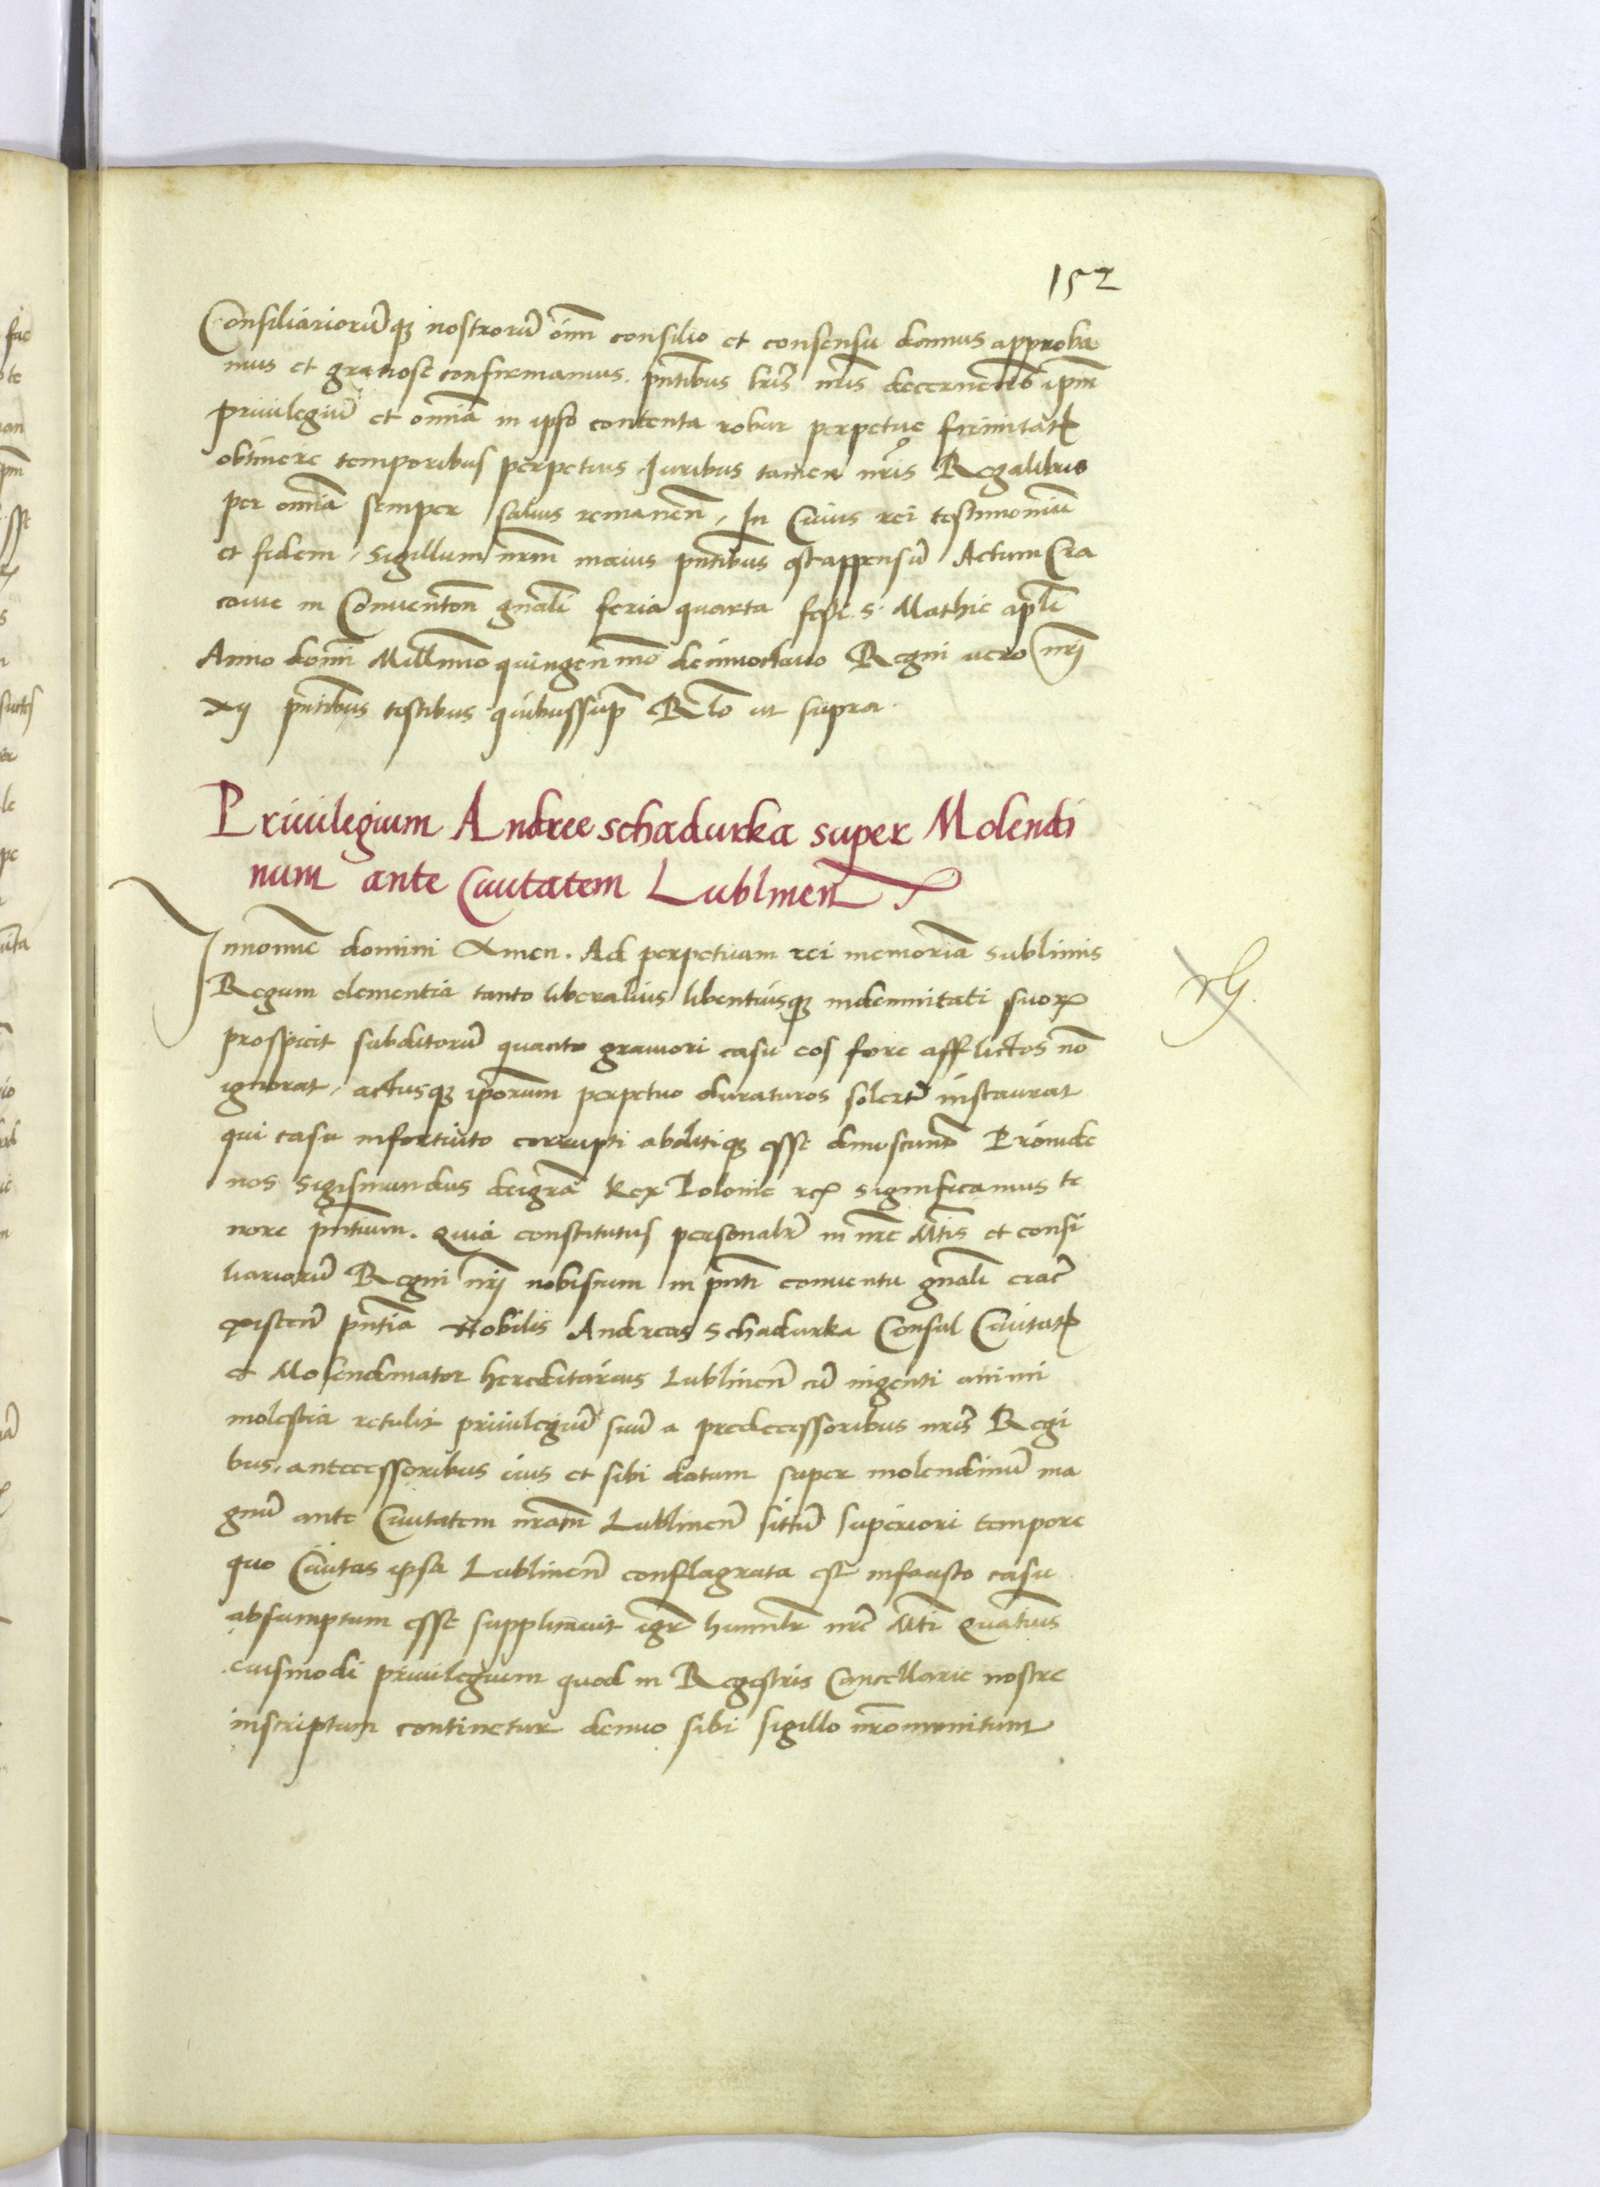 152
Consiliariorũq; nostrorũ oĩm consilio et consensu damus approba
mus et gratiose confirmamus. pñtibus lrĩs nr̃is decernentes ip̃m
priuilegiũ et omĩa in ipso contenta robur perpetue firmitatꝭ
obtinere temporibus perpetuis. Iuribus tamen nr̃is Regalibus
per omĩa semper saluis remaneñ. In Cuius rei testimoniũ
et fidem, Sigillum nr̃m maius pñtibus est appensũ Actum Cra
couie in Conuentoñ gñali feria quarta fest. S. Mathie apl̃i
Anno domĩ Mill̃mo quingeñmo decimooctauo Regni uero nr̃i
xij pñtibus testibus quibus sup̃ R̃lo ut supra.
Priuilegium Andree schadurka super Molendi
num ante Ciuitatem Lublineñ
In nomĩe domini Amen. Ad perpetuam rei memoriã sublimis
Regum clementia tanto liberalius libentiusq; indemnitati suoꝝ
prospicit subditorũ quanto grauiori casu eos fore afflictos nõ
ignorat, actusq; ip̃orum perpetuo duraturos solert̃ instaurat
qui casu infortuito corrupti abolitiq; esse dinoscunt̃ Proinde
nos Sigismundus dei gr̃a Rex Polonie ꝛcꝭ significamus te
nore pñtium. Quia constitutus personalr̃ in nr̃e Mt̃is et consi
liariorũ Regni nr̃i nobiscum in pñti conuentu gñali crac̃
existeñ pñtia Nobilis Andreas Schadurka Consul Ciuitatꝭ
et Molendinator hereditarius Lublineñ cũ ingenti animi
molestia retulit priuilegiũ suũ a predecessoribus nr̃is Regi
bus, antecessoribus eius et sibi datum super molendinũ ma
gnũ ante Ciuitatem nr̃am Lublineñ sitũ superiori tempore
quo Ciuitas ipsa Lublineñ conflagrata est infausto casu
absumptum esse supplicauit igr̃ humilr̃ nr̃e Mt̃i Quatinus
euismodi priuilegium quod in Regestris Cancellarie nostre
inscriptum continetur denuo sibi sigillo nr̃o munitum